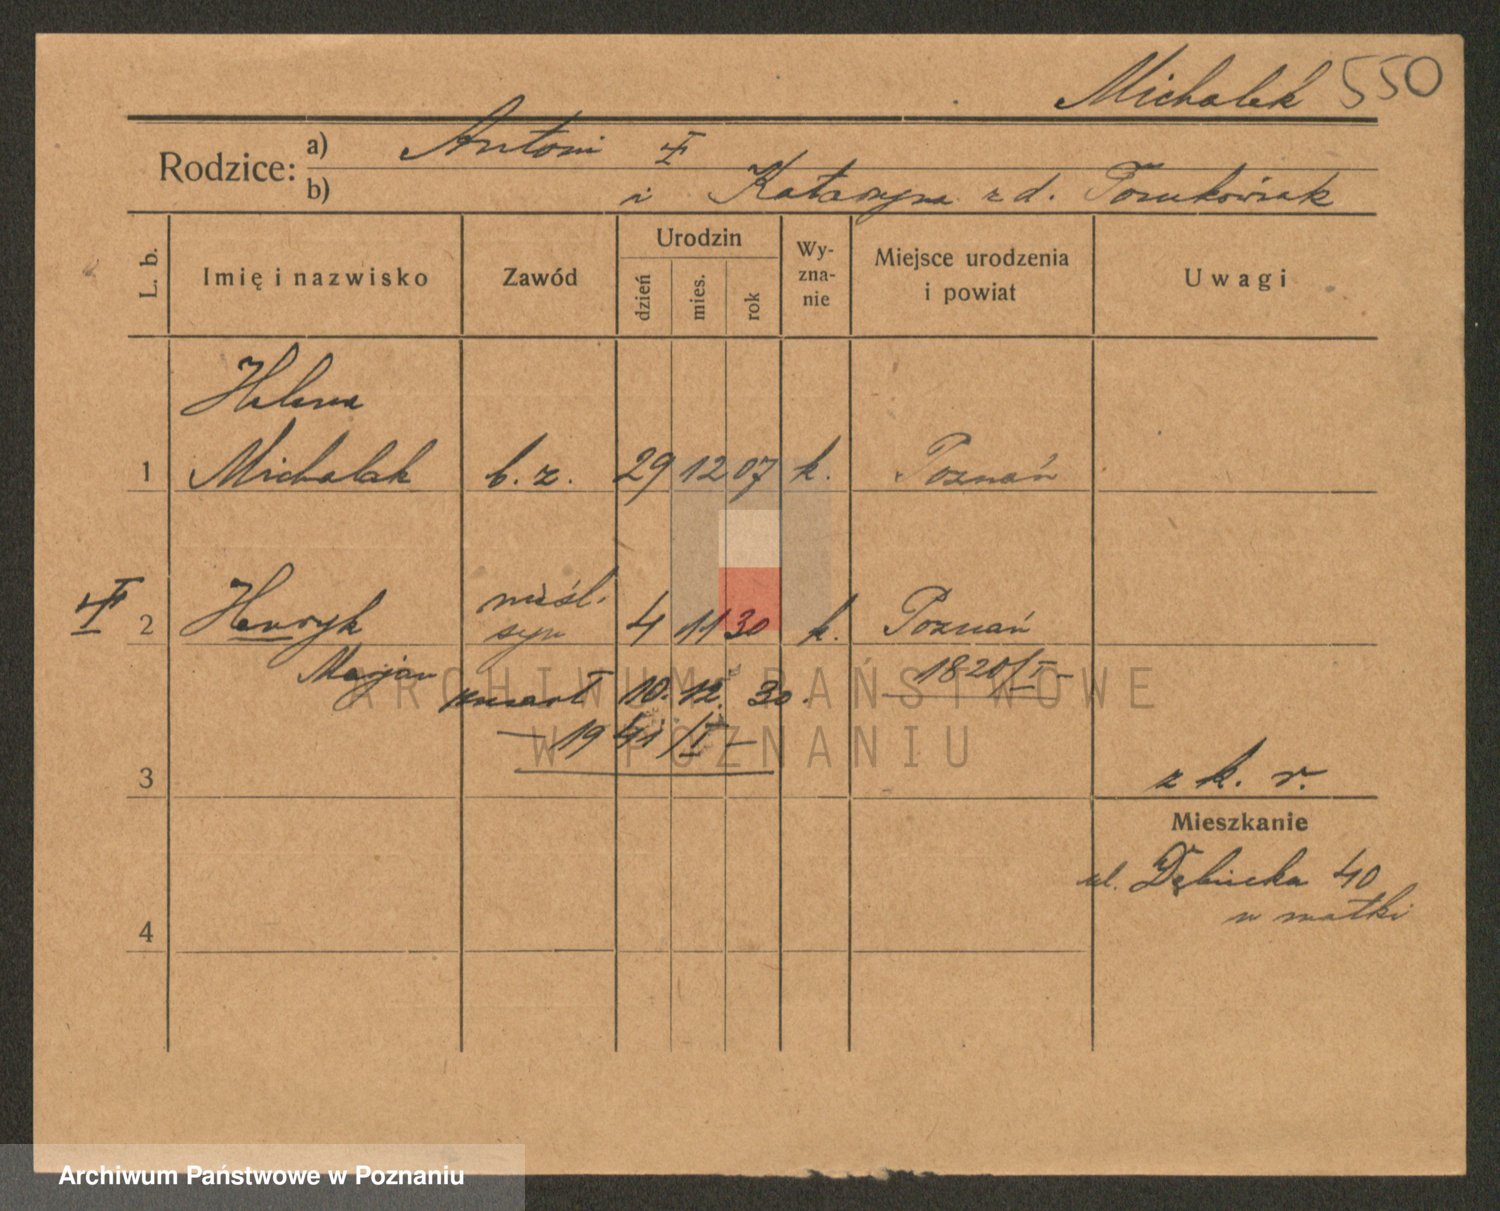 Michalak 550
Rodzice: a) Antoni
b) i Katarzyna z d.
L. b. Imię i nazwisko Zawód Urodzin dzień mies. rok Wy-zna-nie Miejsce urodzenia i powiat Uwagi
Helena
1 Michalak b. z. 29 12 07 k. Poznań
2 Henryk nieśl. syn 4 11 30 k. Poznań
Marjan 1820/I
zmarł 10. 12. 30.
— 1941/I —
3 z k. r.
Mieszkanie
ul. Dębicka 40
u matki
4
ARCHIWUM PAŃSTWOWE
W POZNANIU
Archiwum Państwowe w Poznaniu